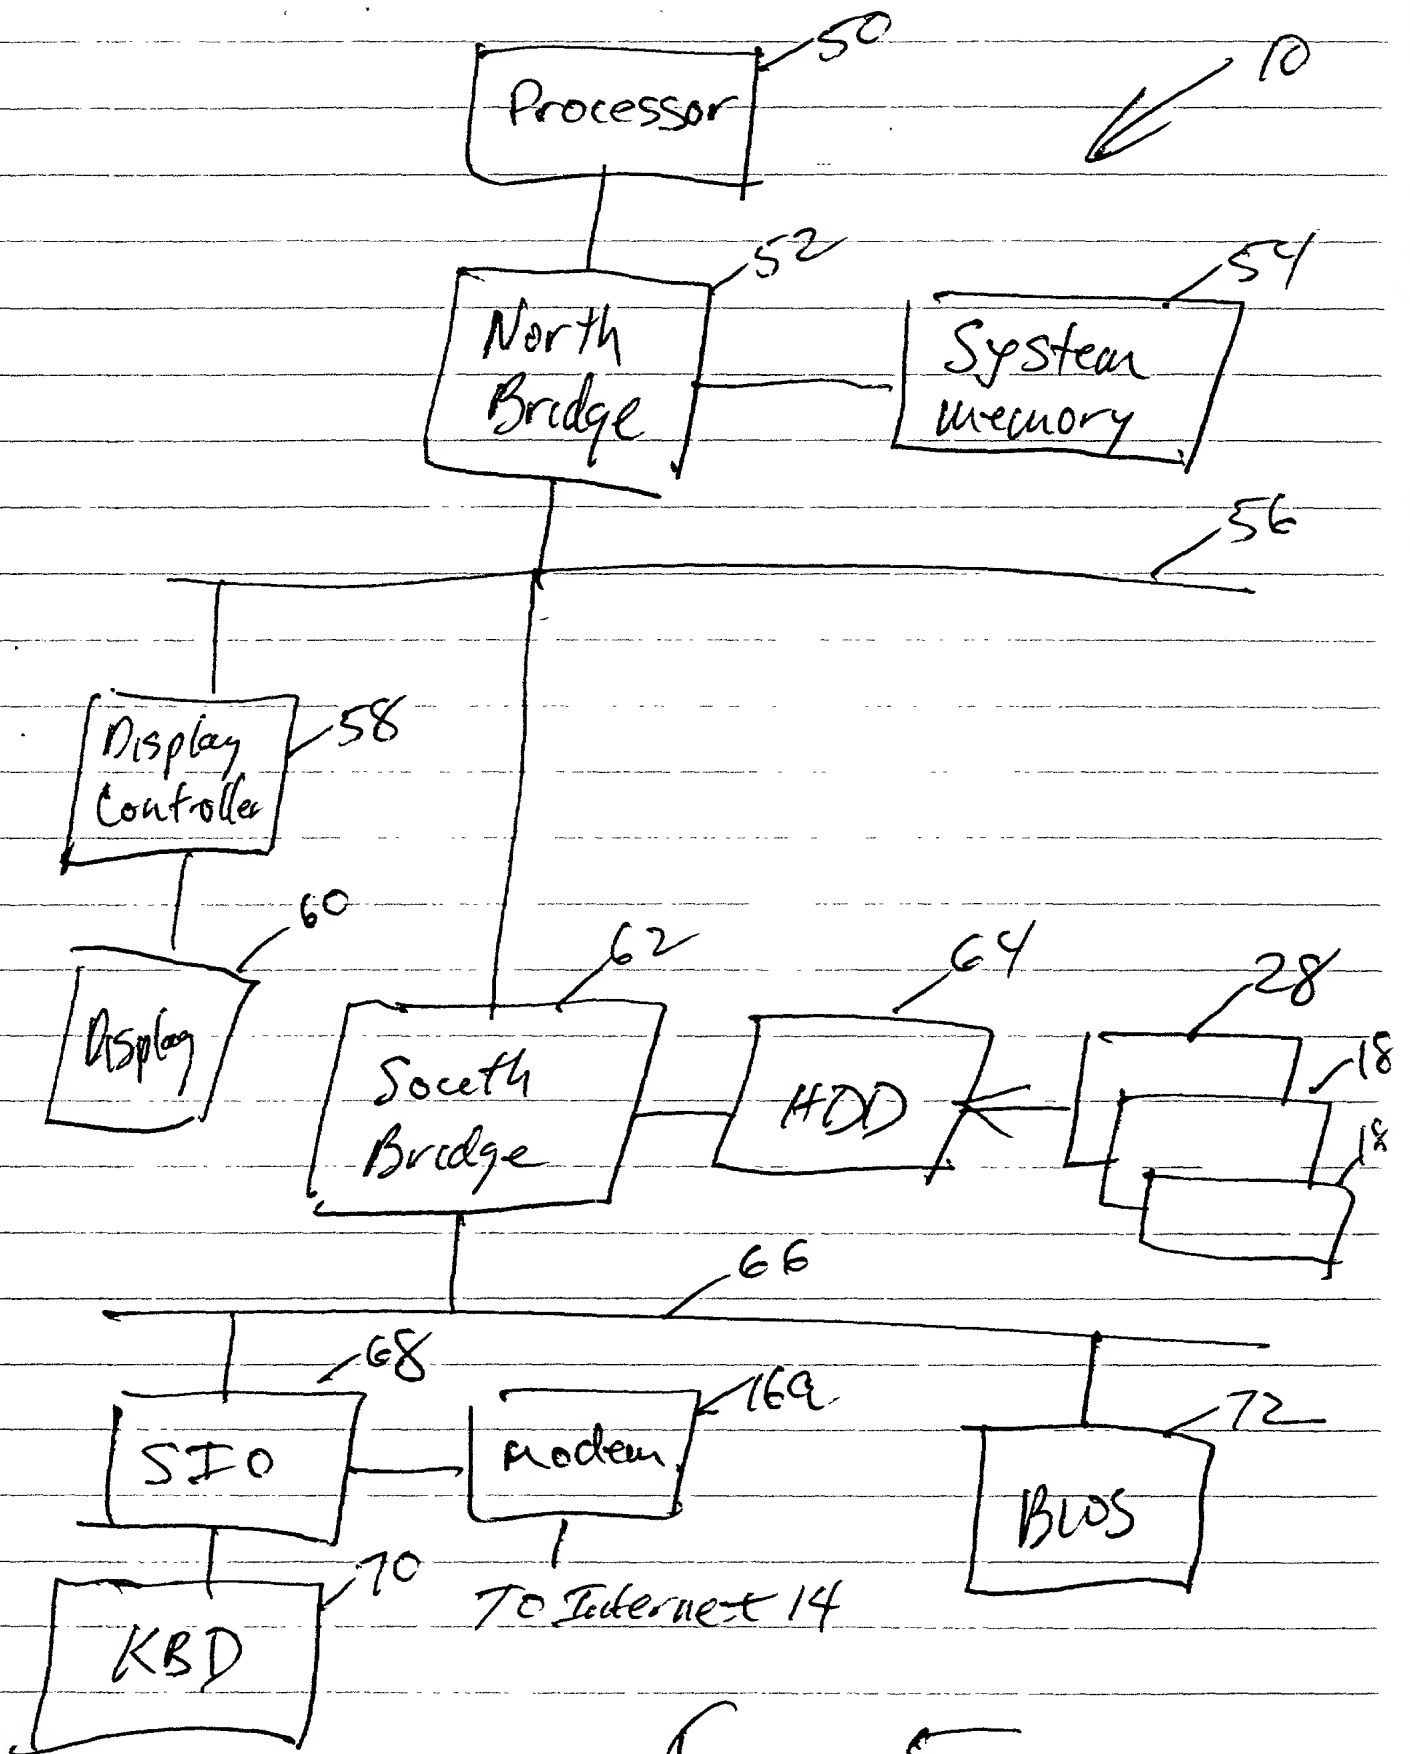 50
10
Processor
52
54
North
Bridge
System
memory
56
Display
Controller
58
60
Display
62
64
28
18
18
South
Bridge
HDD
66
68
16a
72
SIO
Modem
BIOS
70
To Internet 14
KBD